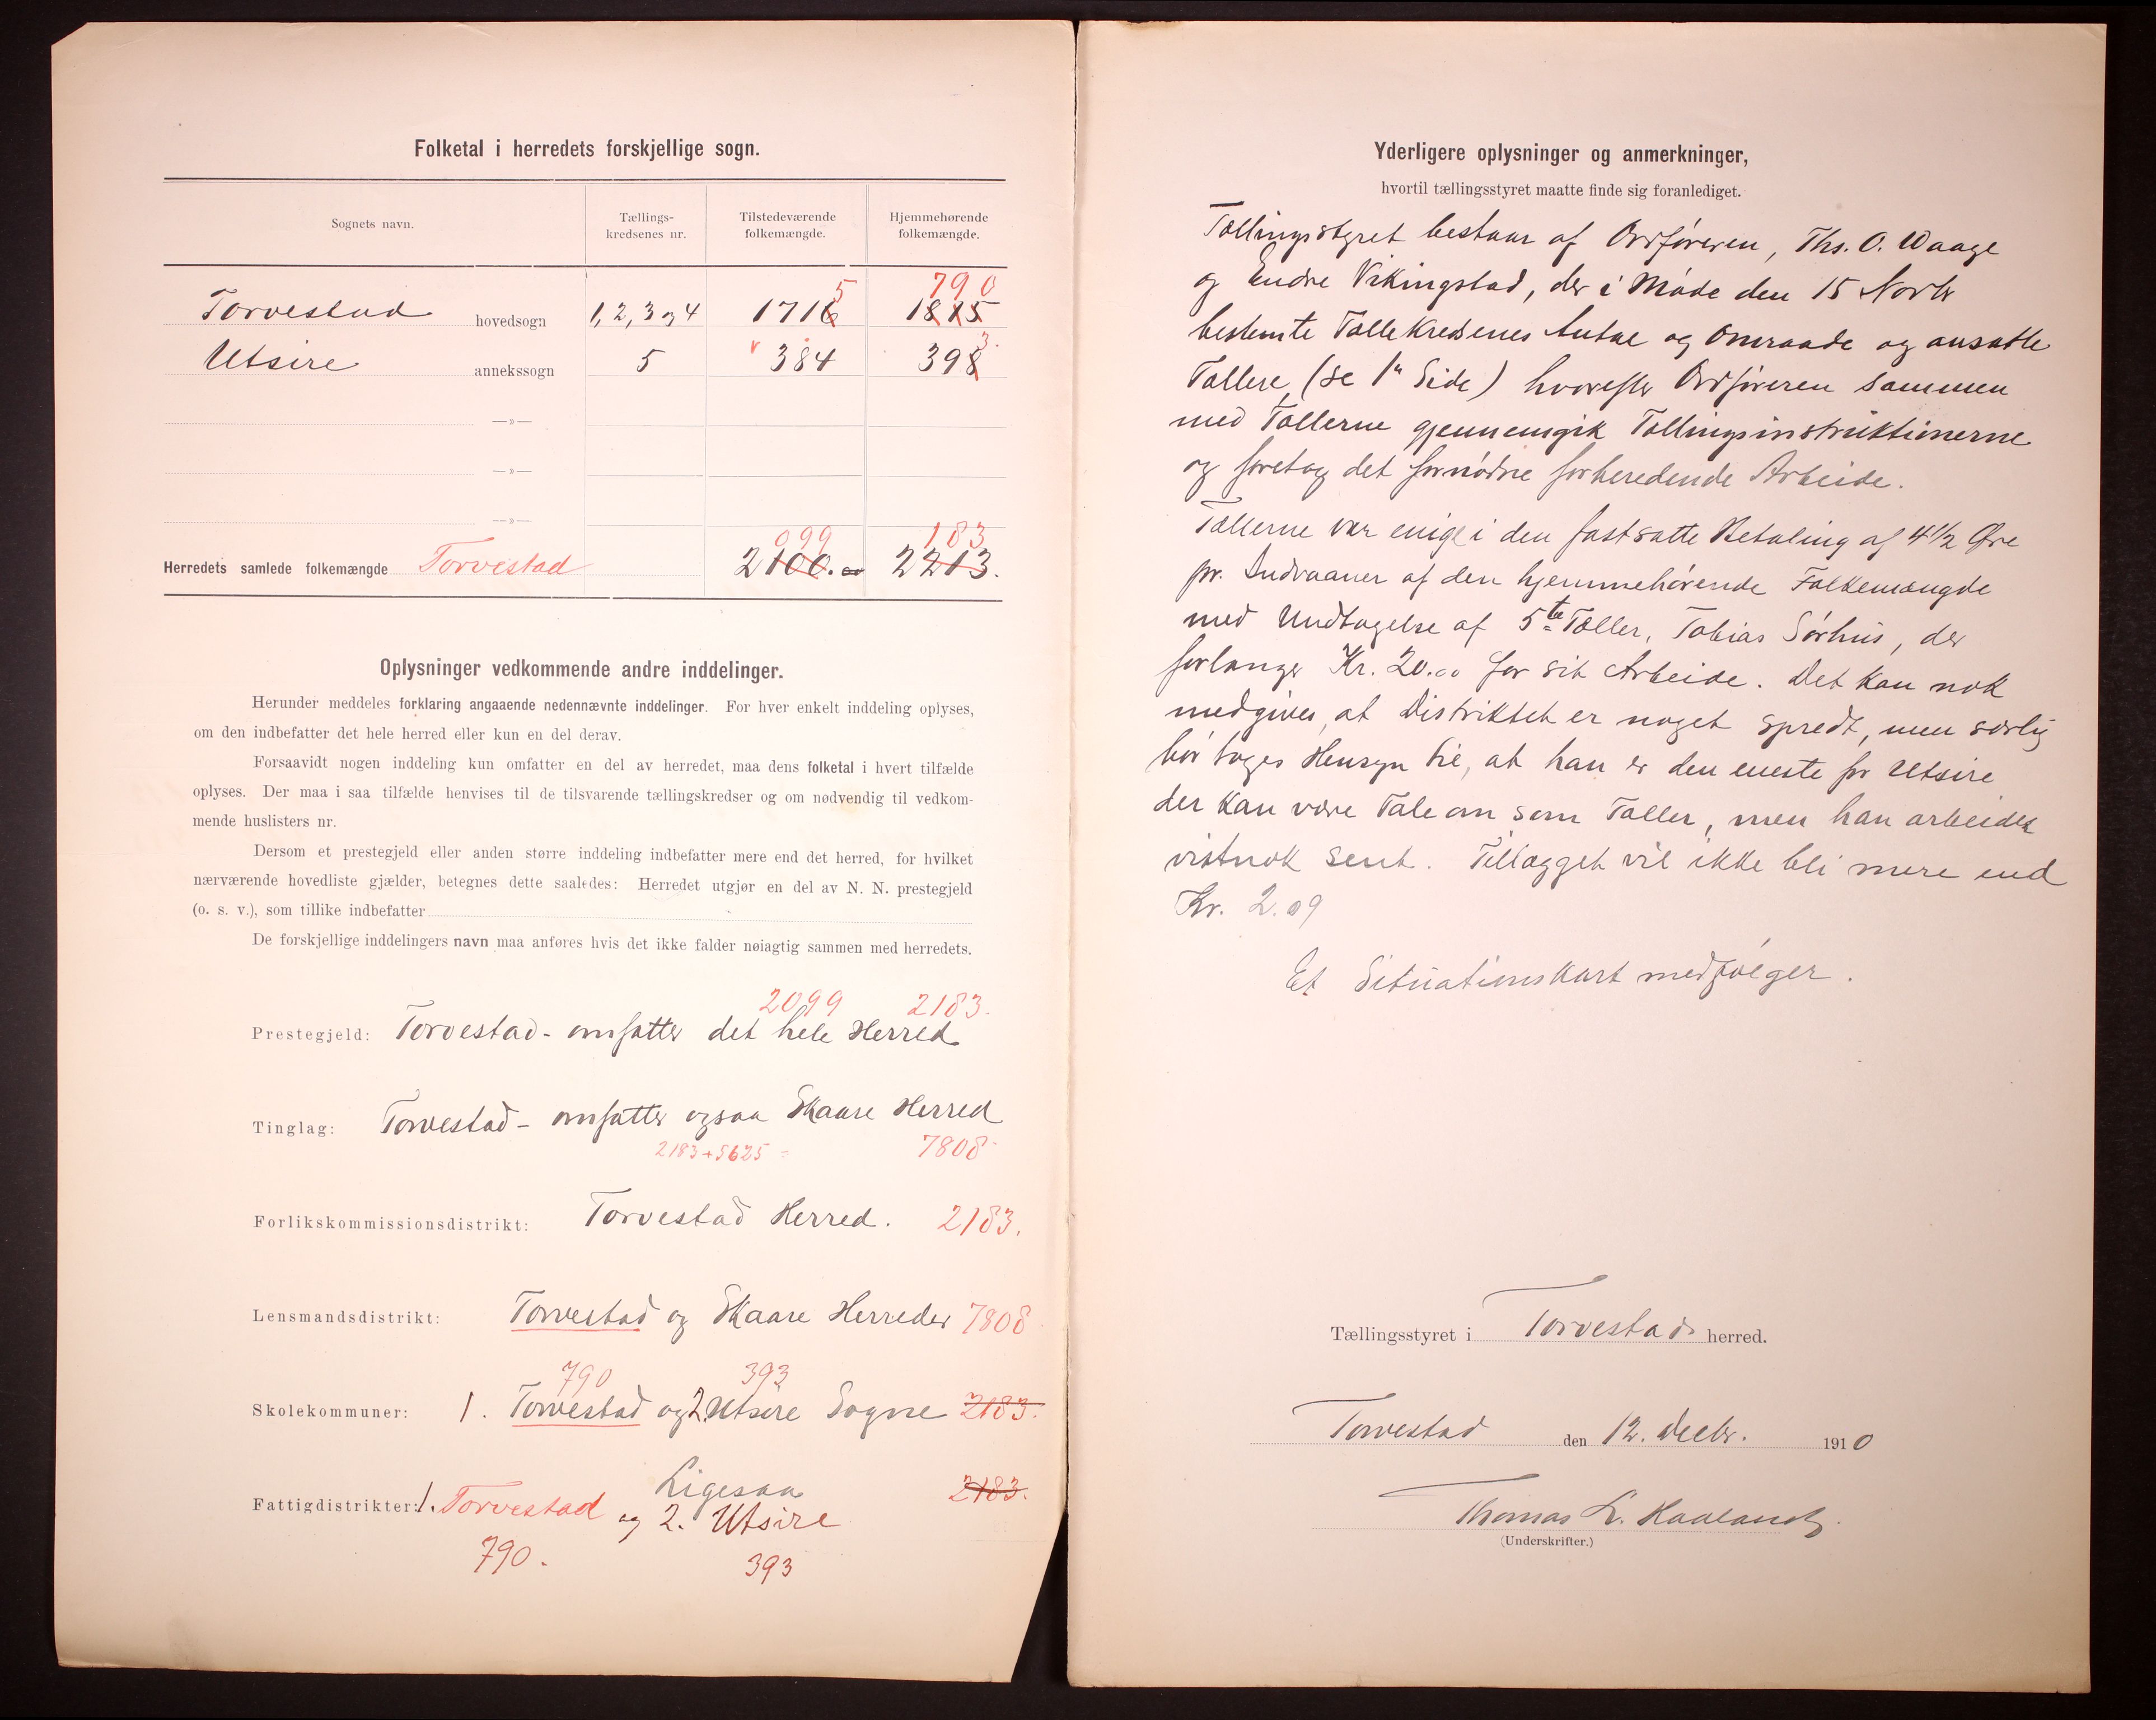 Folketal i herredets forskjellige sogn.
Sognets navn.
Tællings-
kredsenes nr.
Tilstedeværende
folkemængde.
Hjemmehørende
folkemængde.
5 790
Torvestad hovedsogn 1, 2, 3 og 4 1716 1815
3
Utsire annekssogn 5 v 384 398
—»—
—»—
—»—
099 183
Herredets samlede folkemængde Torvestad 2100. 2213.
Oplysninger vedkommende andre inddelinger.
Herunder meddeles forklaring angaaende nedennævnte inddelinger. For hver enkelt inddeling oplyses,
om den indbefatter det hele herred eller kun en del derav.
Forsaavidt nogen inddeling kun omfatter en del av herredet, maa dens folketal i hvert tilfælde
oplyses. Der maa i saa tilfælde henvises til de tilsvarende tællingskredser og om nødvendig til vedkom-
mende huslisters nr.
Dersom et prestegjeld eller anden større inddeling indbefatter mere end det herred, for hvilket
nærværende hovedliste gjælder, betegnes dette saaledes: Herredet utgjør en del av N. N. prestegjeld
(o. s. v.), som tillike indbefatter
De forskjellige inddelingers navn maa anføres hvis det ikke falder nøiagtig sammen med herredets.
2099 2183.
Prestegjeld: Torvestad - omfatter det hele Herred
Tinglag: Torvestad - omfatter ogsaa Skaare Herred
2183 + 5625 = 7808
Forlikskommissionsdistrikt: Torvestad Herred. 2183.
Lensmandsdistrikt: Torvestad og Skaare Herreder 7808
790 393
Skolekommuner: 1. Torvestad og 2. Utsire Sogne 2183.
Ligesaa 2183.
Fattigdistrikter: 1. Torvestad og 2. Utsire
790. 393
Yderligere oplysninger og anmerkninger,
hvortil tællingsstyret maatte finde sig foranlediget.
Tællingsstyret bestaar af Ordføreren, Ths. O. Waage
og Endre Vikingstad, der i Møde den 15 Novbr
bestemte Tællekredsenes Antal og Omraade og ansatte
Tællere, (se 1ste Side) hvorefter Ordføreren sammen
med Tællerne gjennemgik Tællingsinstruktionerne
og foretog det fornødne forberedende Arbeide.
Tællerne var enige i den fastsatte Betaling af 4 1/2 Øre
pr. Indvaaner af den hjemmehørende Folkemængde
med Undtagelse af 5te Tæller, Tobias Sørhus, der
forlanger Kr. 20.00 for sit Arbeide. Det kan nok
medgives, at Distriktet er noget spredt, men særlig
bør tages Hensyn til, at han er den eneste for Utsire
der kan være Tale om som Tæller, men han arbeider
vistnok sent. Tillægget vil ikke bli mere end
Kr. 2.09
Et Situationskart medfølger.
Tællingsstyret i Torvestad herred.
Torvestad den 12. Decbr. 1910
Thomas L. Haaland
(Underskrifter.)